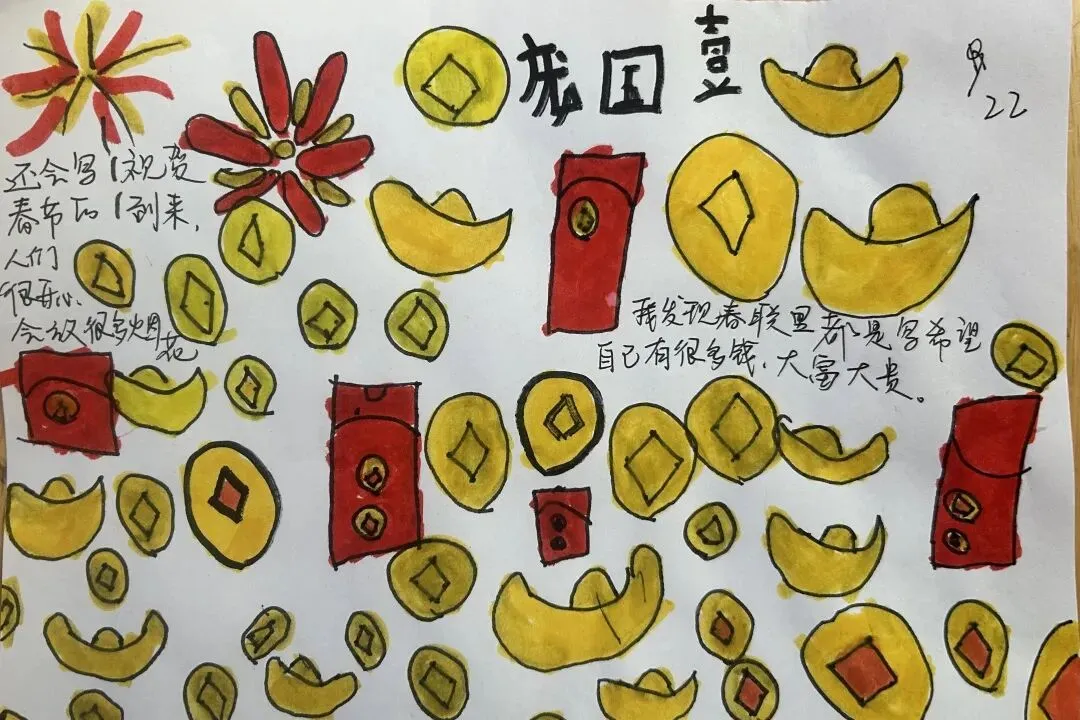 国
男
22
还会写祝贺
春节的到来,
人们
很开心、
会放很多烟花
我发现春联里都是写希望
自己有很多钱，大富大贵。